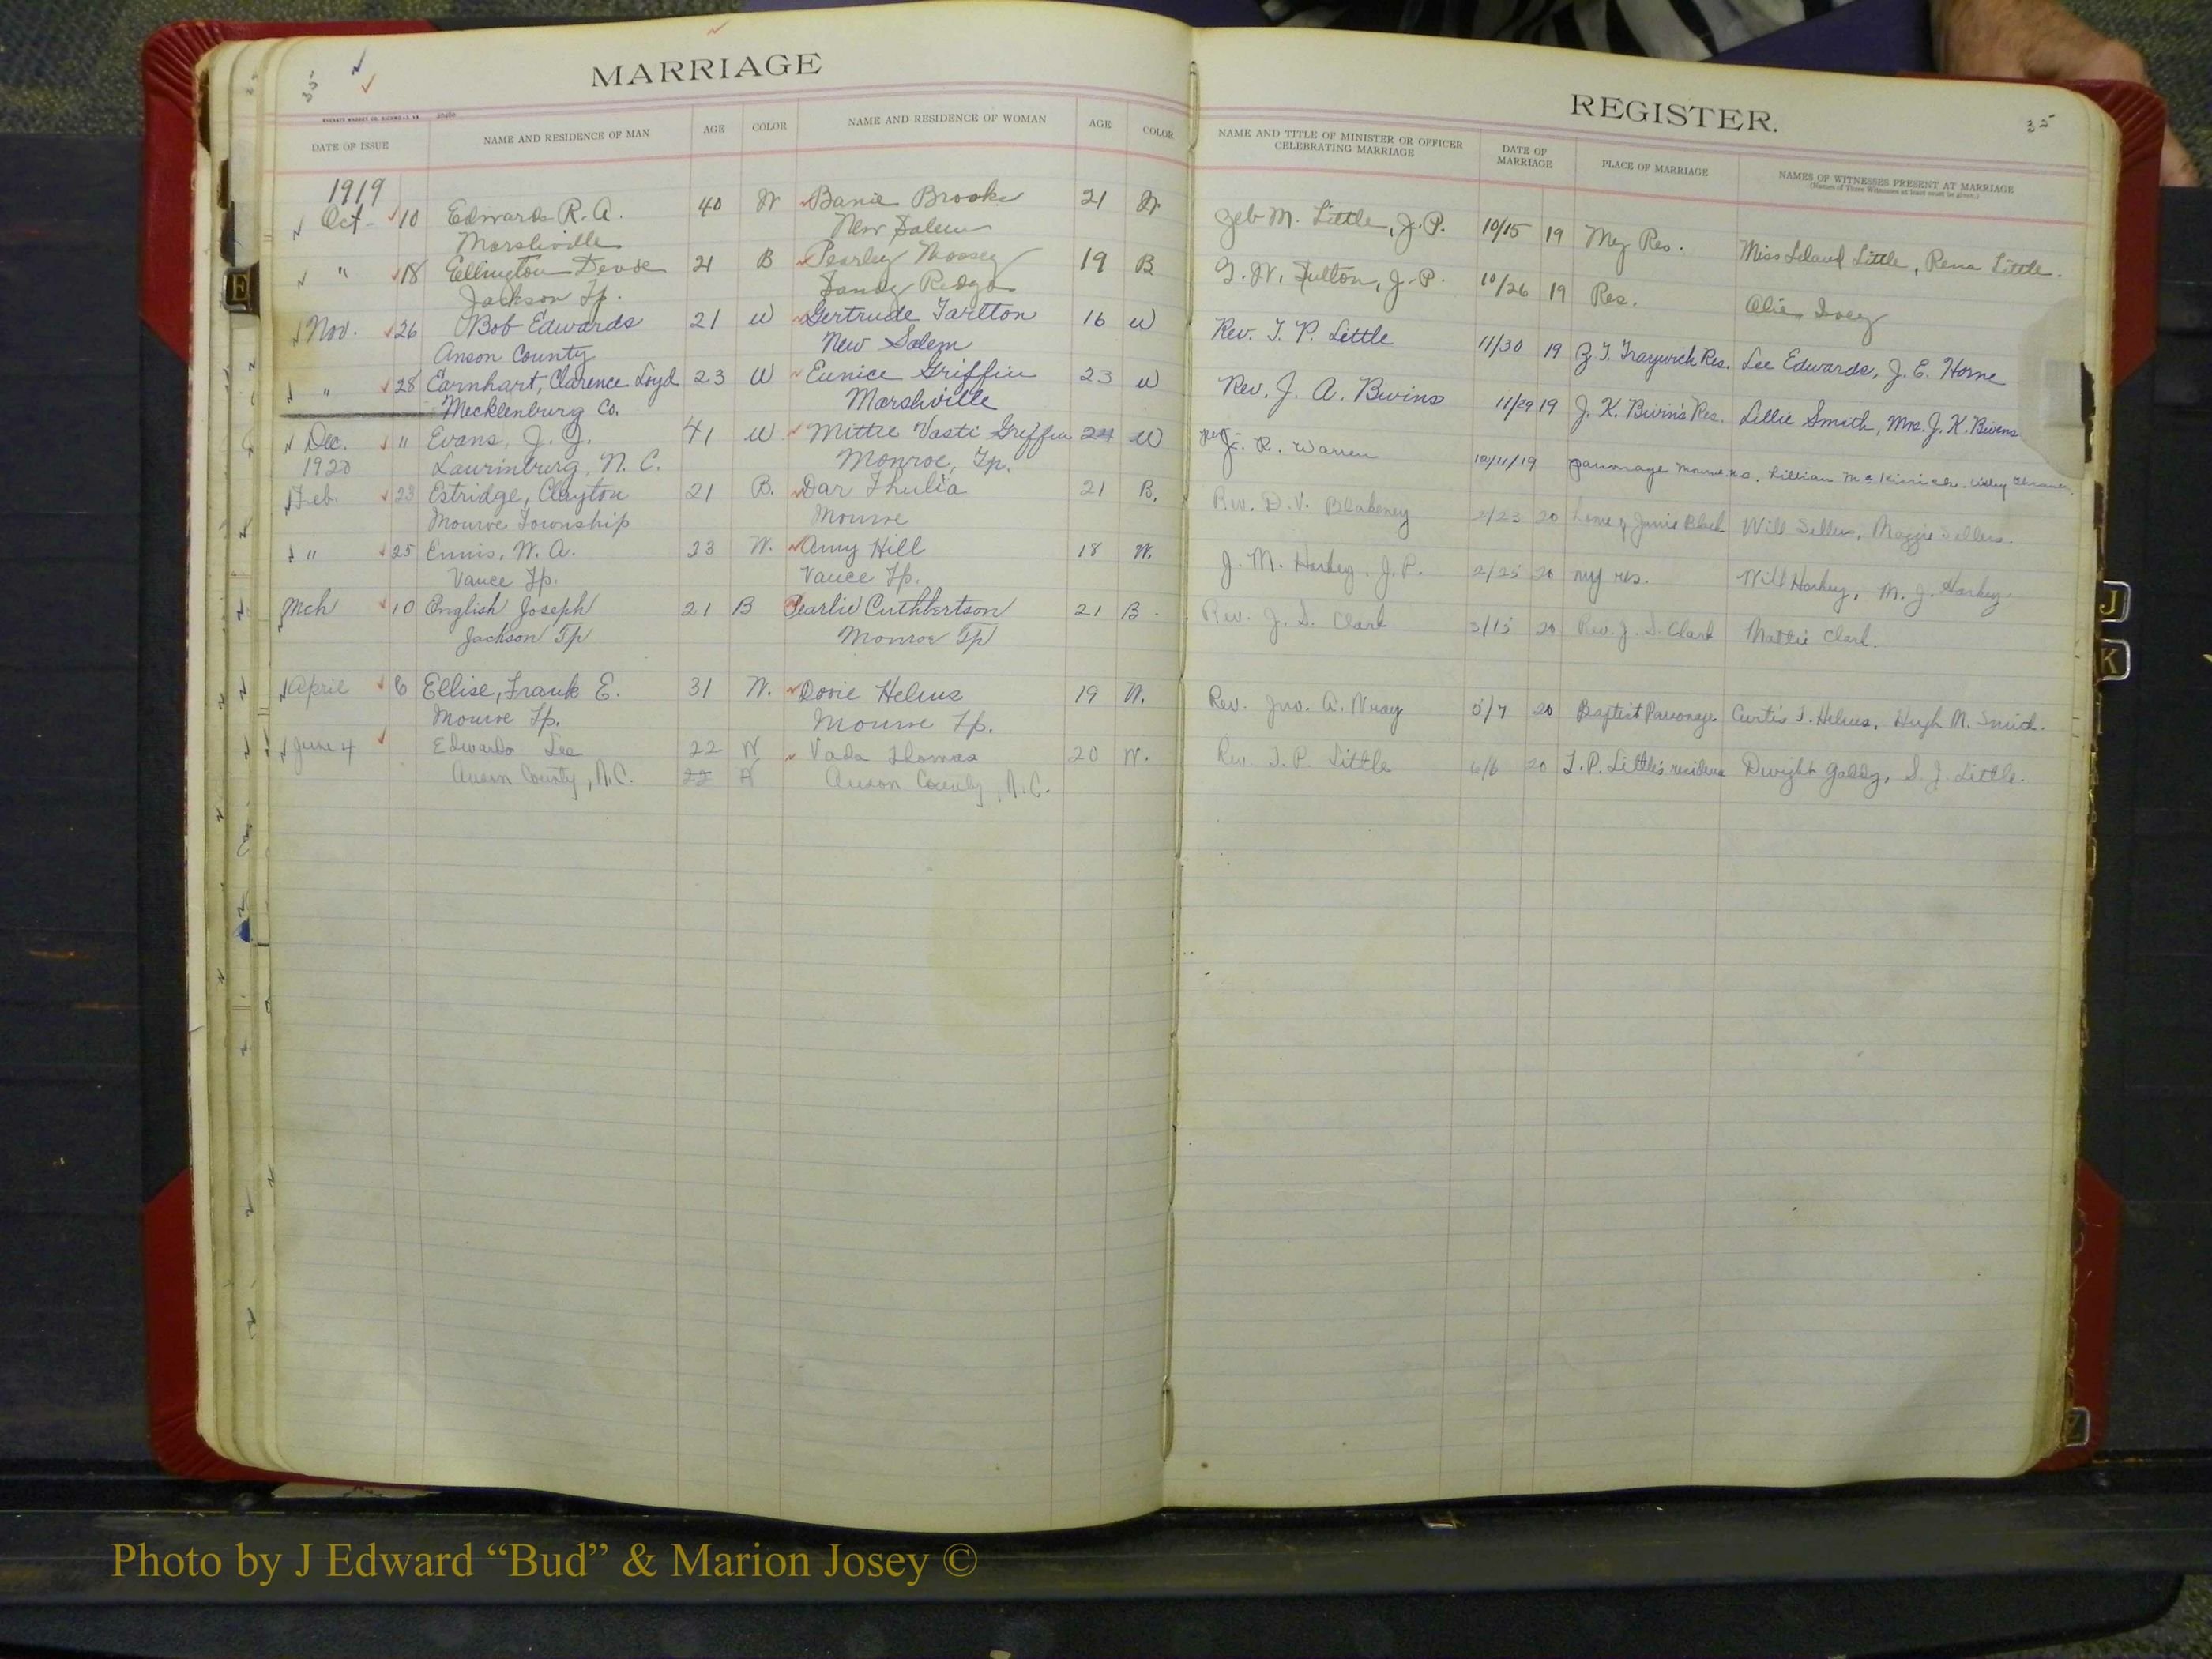 MARRIAGE
REGISTER.
35
35
DATE OF ISSUE
NAME AND RESIDENCE OF MAN
AGE
COLOR
NAME AND RESIDENCE OF WOMAN
AGE
COLOR
NAME AND TITLE OF MINISTER OR OFFICER
CELEBRATING MARRIAGE
DATE OF
MARRIAGE
PLACE OF MARRIAGE
NAMES OF WITNESSES PRESENT AT MARRIAGE
(Names of Three Witnesses at least must be given.)
1919
Oct 10 Edwards R. A. 40 W Banie Brooks 21 W Zeb M. Little, J.P. 10/15 19 My Res. Miss Leland Little, Rena Little.
Marshville New Salem
" 18 Ellington 21 B Pearley Massey 19 B Fulton, J.P. 10/26 19 Res. Olie Ivey
Jackson Tp. Sandy Ridge
Nov. 26 Bob Edwards 21 W Gertrude Tarlton 16 W Rev. T. P. Little 11/30 19 Z. T. Traywick Res. Lee Edwards, J. E. Horne
Anson County New Salem
" 28 Earnhart, Clarence Loyd 23 W Eunice Griffin 23 W Rev. J. A. Bivins 11/29 19 J. K. Bivin's Res. Lillie Smith, Mrs. J. K. Bivens
Mecklenburg Co. Marshville
Dec. " Evans, J. J. 41 W Mittie Vasti Griffin 24 W R. Warren 12/11/19 parsonage Lillian
1920 Laurinburg, N. C. Monroe, Tp.
Feb. 23 Estridge, Clayton 21 B. Dar Thulia 21 B. Rev. D. V. Blakeney 2/23 20 Janie Black Will Sellers, Maggie Sellers.
Monroe Township Monroe
" 25 Ennis, W. A. 23 W. Amy Hill 18 W. J. M. Harkey, J.P. 2/25 20 my res. Will Harkey, M. J. Harkey
Vance Tp. Vance Tp.
Mch 10 English Joseph 21 B Pearlie Cuthbertson 21 B. Rev. J. S. Clark 3/15 20 Rev. J. S. Clark Mattie Clark.
Jackson Tp Monroe Tp
April 6 Ellise, Frank E. 31 W. Dovie Helms 19 W. Rev. Jno. A. Wray 5/7 20 Baptist Parsonage Curtis J. Helms, Hugh M.
Monroe Tp. Monroe Tp.
June 4 Edwards Lee 22 W Vada Thomas 20 W. Rev T. P. Little 6/6 20 T. P. Little's residence Dwight Gaddy, S. J. Little.
Anson County, N.C. 22 Anson County, N.C.
E
J
K
Photo by J Edward “Bud” & Marion Josey ©